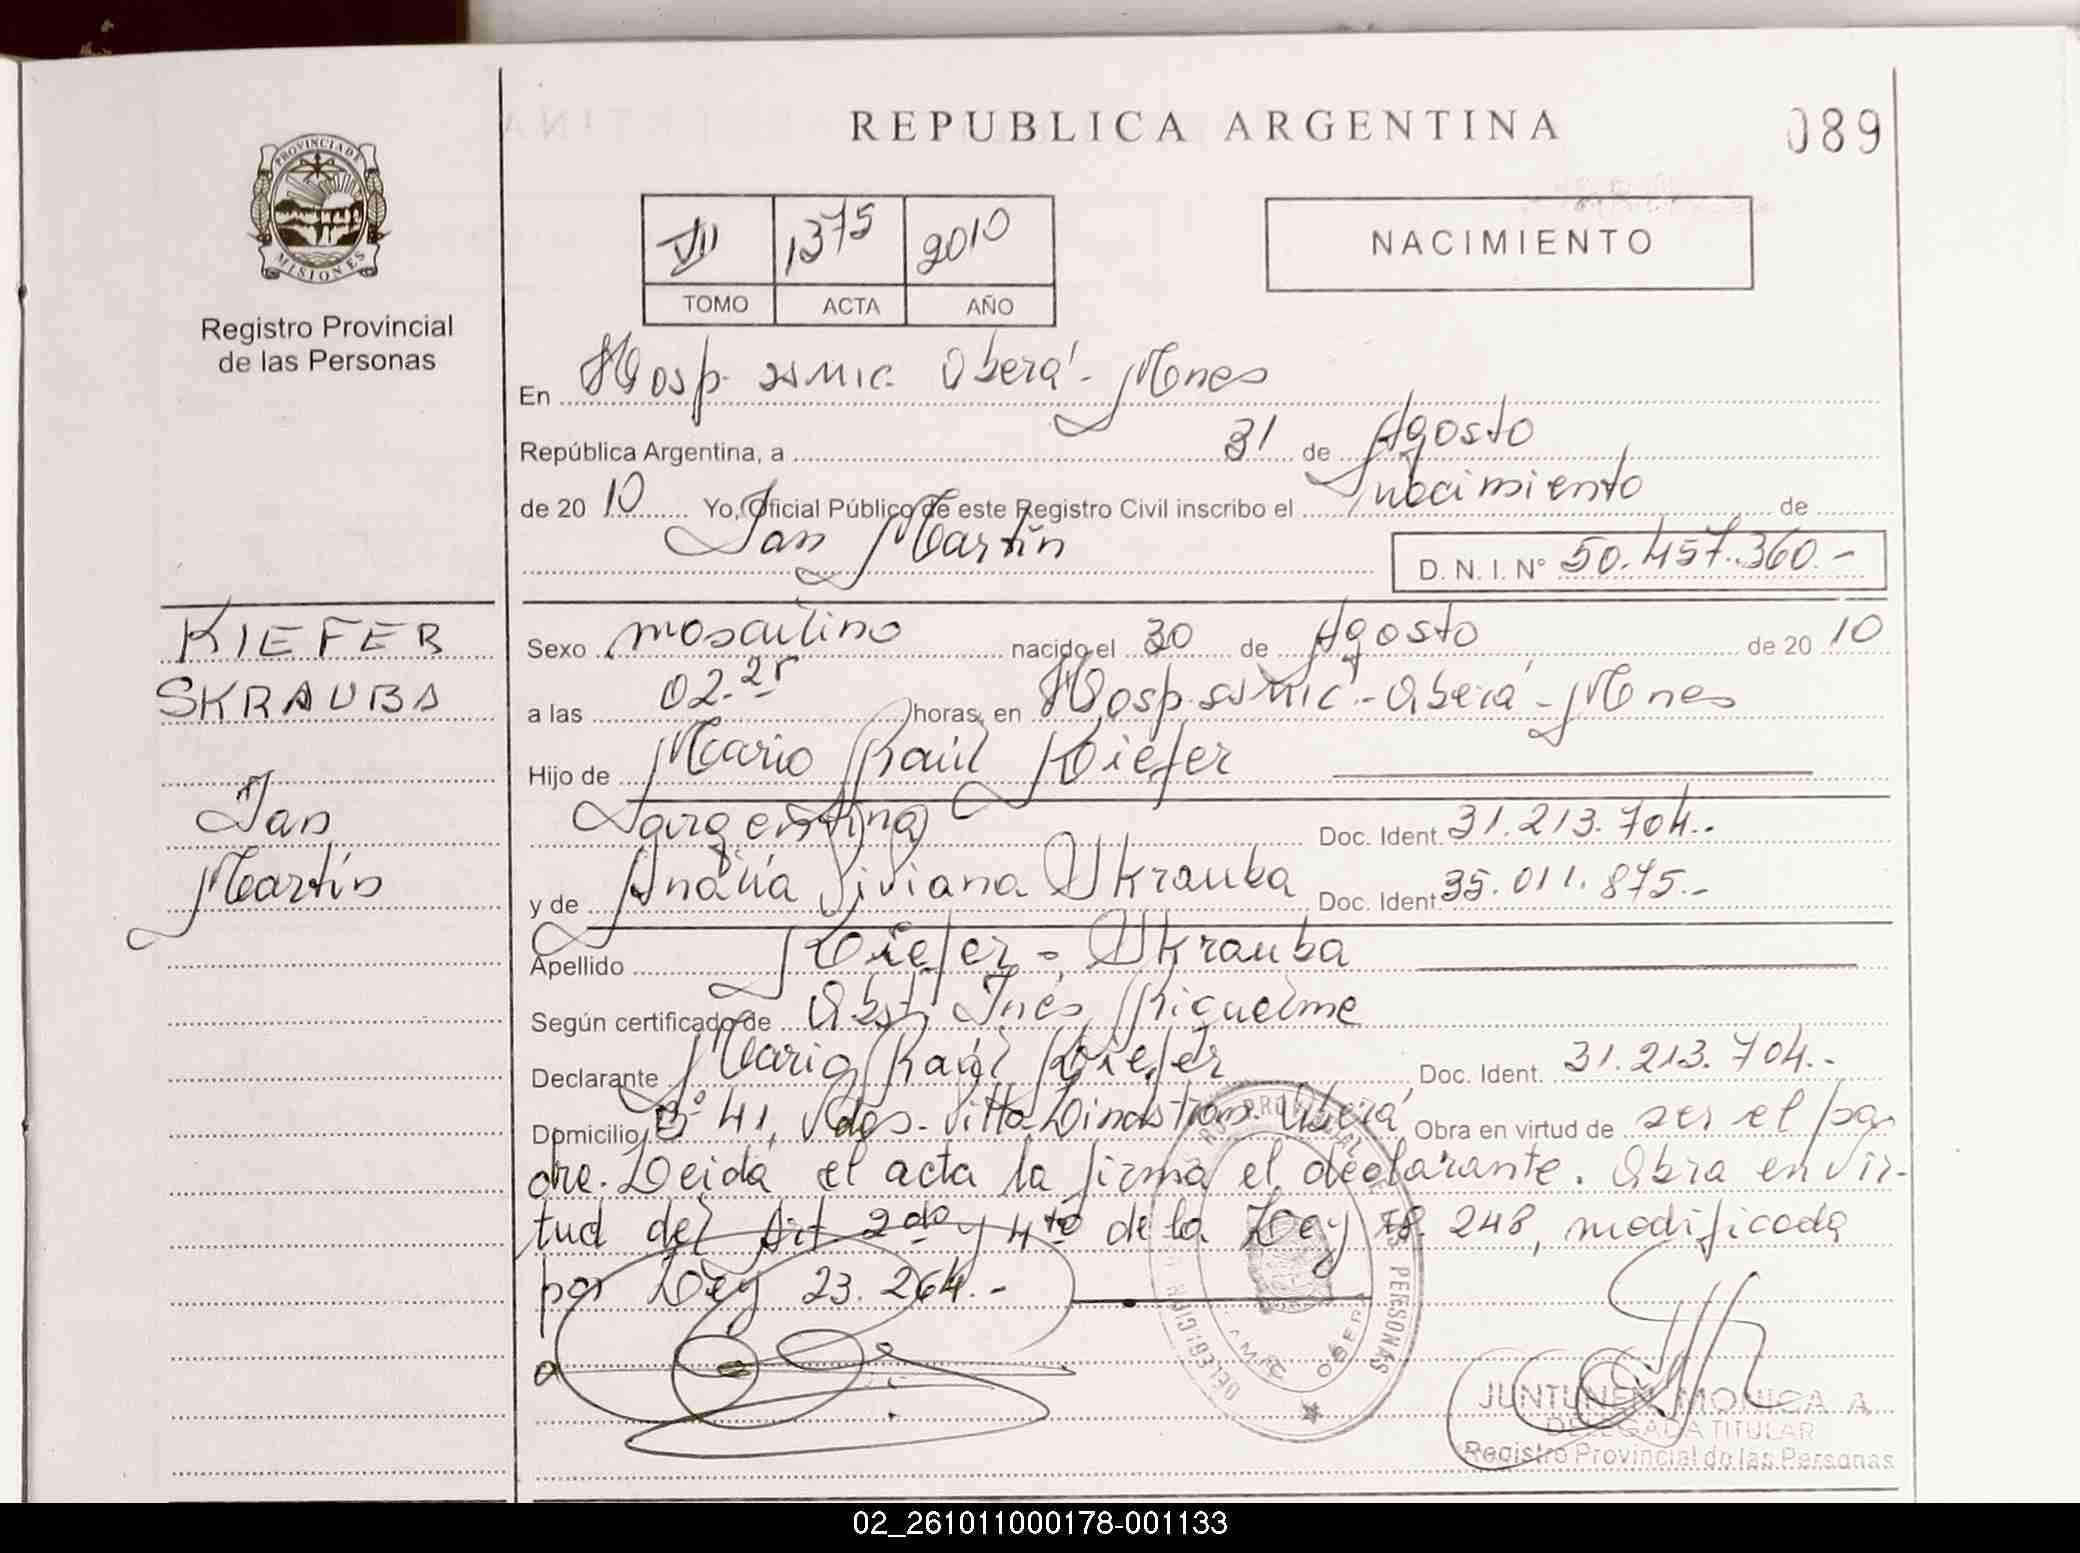 REPUBLICA ARGENTINA
089
PROVINCIA DE
MISIONES
Registro Provincial
de las Personas
VII 1375 2010
TOMO ACTA AÑO
NACIMIENTO
En Hosp. SAMIC. Oberá - Mnes
República Argentina, a 31 de Agosto
de 2010 Yo, Oficial Público de este Registro Civil inscribo el nacimiento de
Ian Martín D. N. I. N° 50.457.360.-
KIEFER
SKRAUBA
Ian
Martín
Sexo masculino nacido el 30 de Agosto de 2010
a las 02.25 horas, en Hosp. SAMIC - Oberá - Mnes
Hijo de Mario Raúl Kiefer
argentina Doc. Ident. 31.213.704.-
y de Analía Viviana Skrauba Doc. Ident. 35.011.875.-
Apellido Kiefer - Skrauba
Según certificado de Obst. Inés Riquelme
Declarante Mario Raúl Kiefer Doc. Ident. 31.213.704.-
Domicilio B° 41, Vdas. Villa Lindstrom Oberá Obra en virtud de ser el pa
dre. Leida el acta la firma el declarante. Obra en vir-
tud del Art 2do y 4to de la Ley 18.248, modificada
por Ley 23.264.-
JUNTUNEN MONICA A
DELEGADA TITULAR
Registro Provincial de las Personas
02_261011000178-001133